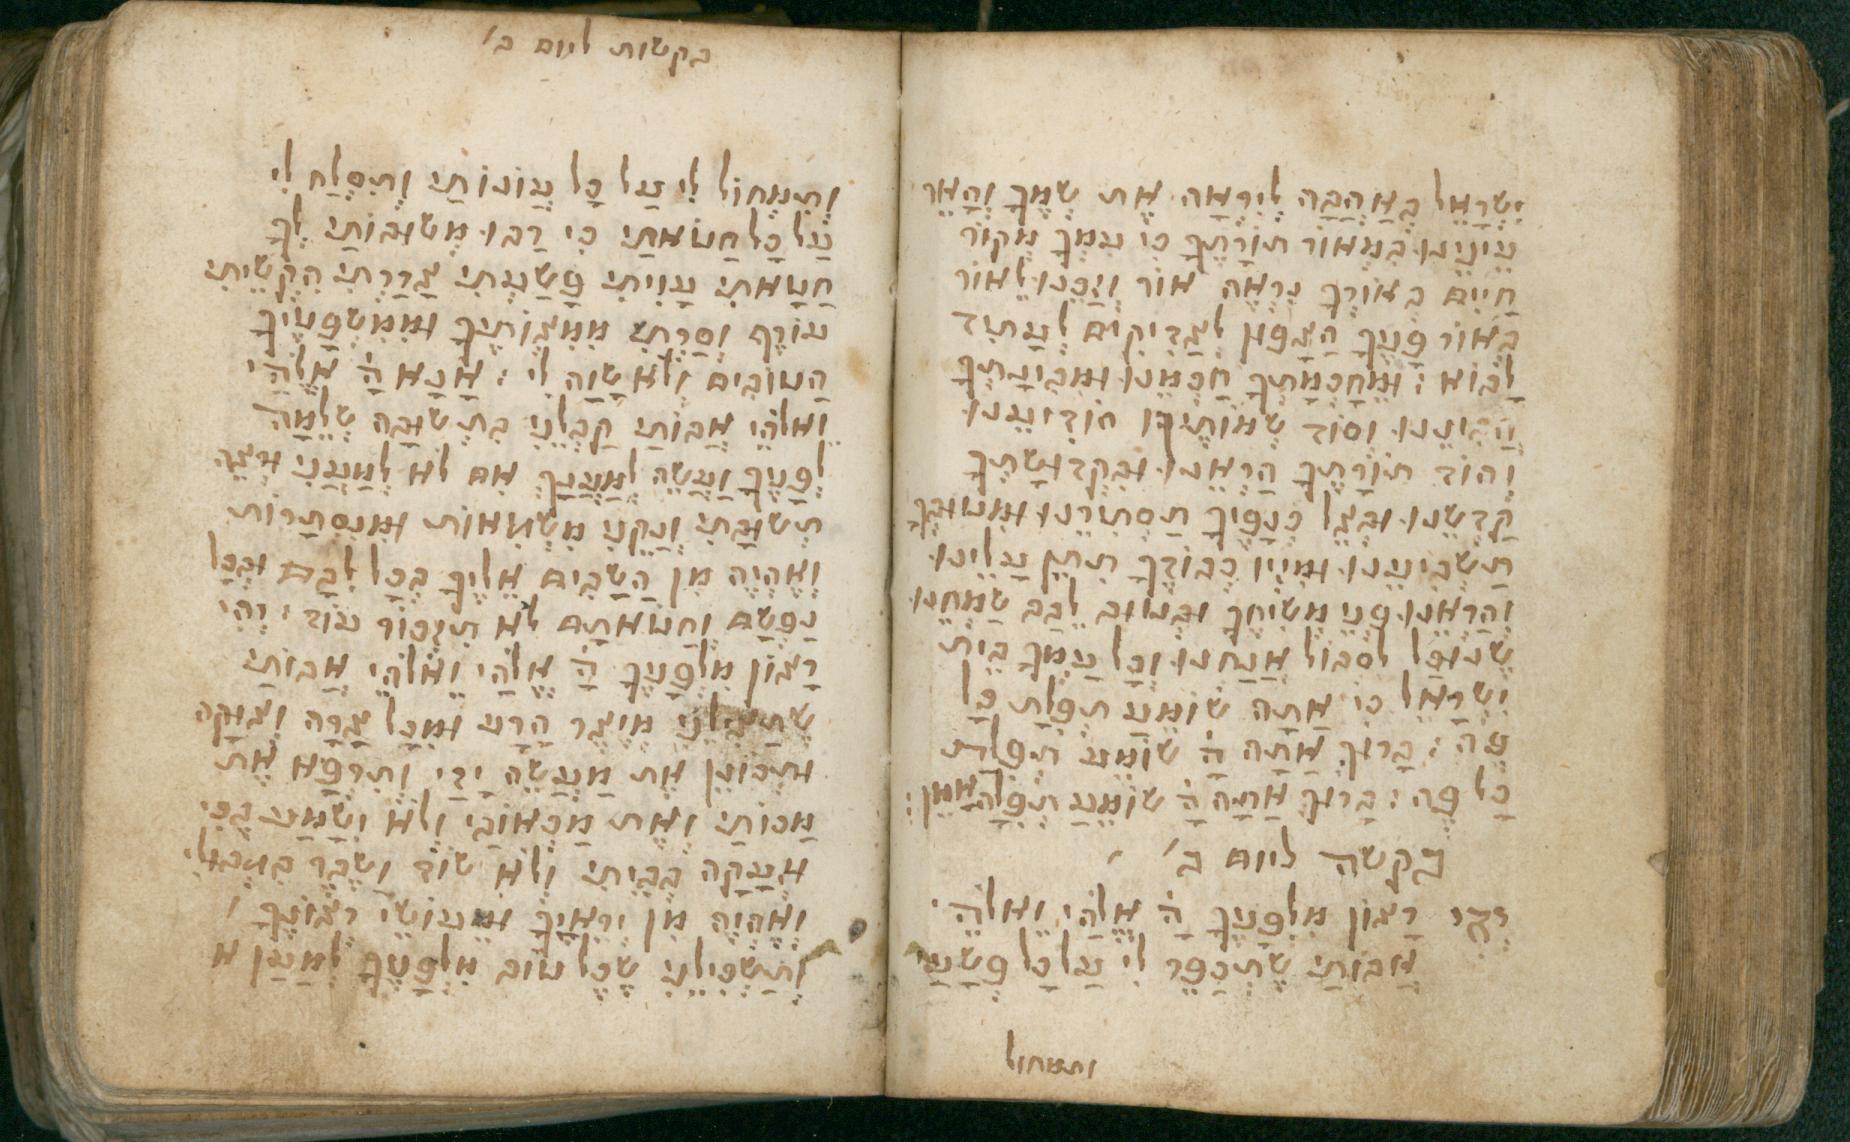 יִשְׂרָאֵל בְּאַהֲבָה לְיִרְאָה אֶת שְׁמֶךָ וְהָאֵר
עֵינֵינוּ בִּמְאוֹר תּוֹרָתֶךָ כִּי עִמְךָ מְקוֹר
חַיִּים בְּאוֹרְךָ נִרְאֶה אוֹר וְזַכֵּנוּ לֵאוֹר
בְּאוֹר פָּנֶיךָ הַצָּפוּן לְצַדִּיקִים לְעָתִיד
לָבוֹא : וּמֵחָכְמָתְךָ חַכְּמֵנוּ וּמִבִּינָתְךָ
הֲבִינֵנוּ וְסוֹד שְׁמוֹתֶיךָ הוֹדִיעֵנוּ
וְהוֹד תּוֹרָתְךָ הַרְאֵנוּ וּבִקְדוּשָׁתְךָ
קַדְּשֵׁנוּ וּבְצֵל כְּנָפֶיךָ תַּסְתִּירֵנוּ וּמִטּוּבְךָ
תַּשְׂבִּיעֵנוּ וּמִזִּיו כְּבוֹדְךָ תִּתֵּן עָלֵינוּ
וְהַרְאֵנוּ פְּנֵי מְשִׁיחֶךָ וּבְטוּב לֵבָב שַׂמְּחֵנוּ
שֶׁנּוּכַל לִסְבּוֹל אֲנַחְנוּ וְכָל עַמְּךָ בֵּית
יִשְׂרָאֵל כִּי אַתָּה שׁוֹמֵעַ תְּפִלַּת כָּל
פֶּה : בָּרוּךְ אַתָּה ה' שׁוֹמֵעַ תְּפִלַּת
כָּל פֶּה : בָּרוּךְ אַתָּה ה' שׁוֹמֵעַ תְּפִלָּה אָמֵן :
בקשה ליום ב'
יְהִי רָצוֹן מִלְּפָנֶיךָ ה' אֱלֹהַי וֵאלֹהֵי
אֲבוֹתַי שֶׁתְּכַפֵּר לִי עַל כָּל פְּשָׁעַי
ותמחול
בקשות ליום ב'
וְתִמְחוֹל לִי עַל כָּל עֲוֹנוֹתַי וְתִסְלַח לִי
עַל כָּל חַטֹּאתַי כִּי רַבּוּ מְשׁוּבוֹתַי לְךָ
חָטָאתִי עָוִיתִי פָּשַׁעְתִּי צָרַרְתִּי הִקְשֵׁיתִי
עוֹרֶף וְסַרְתִּי מִמִּצְוֹתֶיךָ וּמִמִּשְׁפָּטֶיךָ
הַטּוֹבִים וְלֹא שָׁוָה לִי : אָנָּא ה' אֱלֹהַי
וֵאלֹהֵי אֲבוֹתַי קַבְּלֵנִי בִּתְשׁוּבָה שְׁלֵמָה
לְפָנֶיךָ וַעֲשֵׂה לְמַעֲנָךְ אִם לֹא לְמַעֲנִי וּרְצֵה
תְשׁוּבָתִי וְנַקֵּנִי מִשְּׁגִיאוֹת וּמִנִּסְתָּרוֹת
וְאֶהְיֶה מִן הַשָּׁבִים אֵלֶיךָ בְּכָל לִבָּם וּבְכָל
נַפְשָׁם וְחַטֹּאתָם לֹא תִזְכּוֹר עוֹד : יְהִי
רָצוֹן מִלְּפָנֶיךָ ה' אֱלֹהַי וֵאלֹהֵי אֲבוֹתַי
שֶׁתַּצִּילֵנִי מִיֵּצֶר הָרָע וּמִכָּל צָרָה וְצוּקָה
וּתְכוֹנֵן אֶת מַעֲשֵׂה יָדַי וְתִרְפָּא אֶת
מַכּוֹתַי וְאֶת מַכְאוֹבַי וְלֹא יִשָּׁמַע בְּכִי
וּצְעָקָה בְּבֵיתִי וְלֹא שׁוֹד וָשֶׁבֶר בִּגְבוּלִי
וְאֶהְיֶה מִן יְרֵאֶיךָ וּמֵעוֹשֵׂי רְצוֹנֶךָ
וְתַשְׂכִּילֵנִי שֵׂכֶל טוֹב מִלְּפָנֶיךָ לְמַעַן א